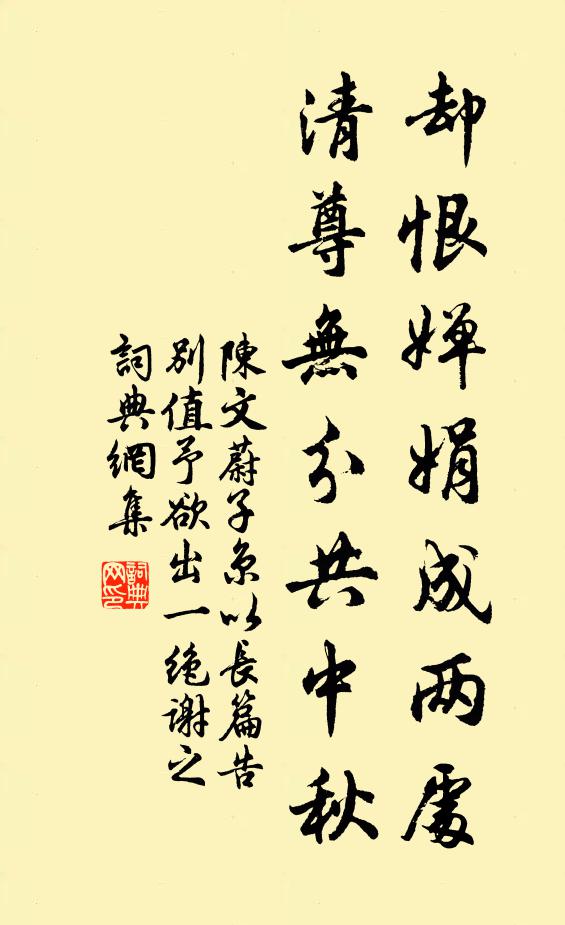 却恨婵娟成两處
清尊無分共中秋
陳文蔚子京以長篇告
别值予欲出一绝謝之
詞典網集
詞典网印